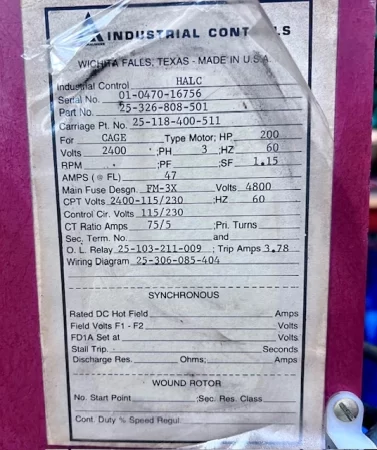 INDUSTRIAL CONT LS
WICHITA FALLS, TEXAS - MADE IN U.S.A.
Industrial Control HALC
Serial No. 01-0470-16756
Part No. 25-326-808-501
Carriage Pt. No. 25-118-400-511
For CAGE Type Motor; HP 200
Volts 2400 ;PH 3 ;HZ 60
RPM ;PF ;SF 1.15
AMPS (@ FL) 47
Main Fuse Desgn. FM-3X Volts 4800
CPT Volts 2400-115/230 ;HZ 60
Control Cir. Volts 115/230
CT Ratio Amps 75/5 ;Pri. Turns
Sec. Term. No. and
O. L. Relay 25-103-211-009 ; Trip Amps 3.78
Wiring Diagram 25-306-085-404
SYNCHRONOUS
Rated DC Hot Field Amps
Field Volts F1 - F2 Volts
FD1A Set at Volts
Stall Trip Seconds
Discharge Res. Ohms; Amps
WOUND ROTOR
No. Start Point ;Sec. Res. Class
Cont. Duty % Speed Regul.